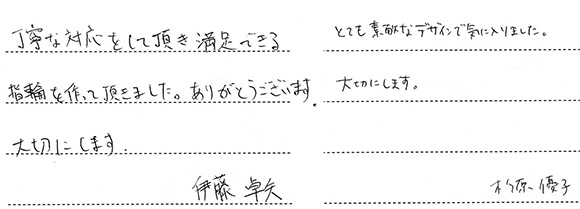 丁寧な対応をして頂き満足できる
指輪を作って頂きました。ありがとうございます.
大切にします.
伊藤 卓矢
とても素敵なデザインで気に入りました。
大切にします。
杉原 優子